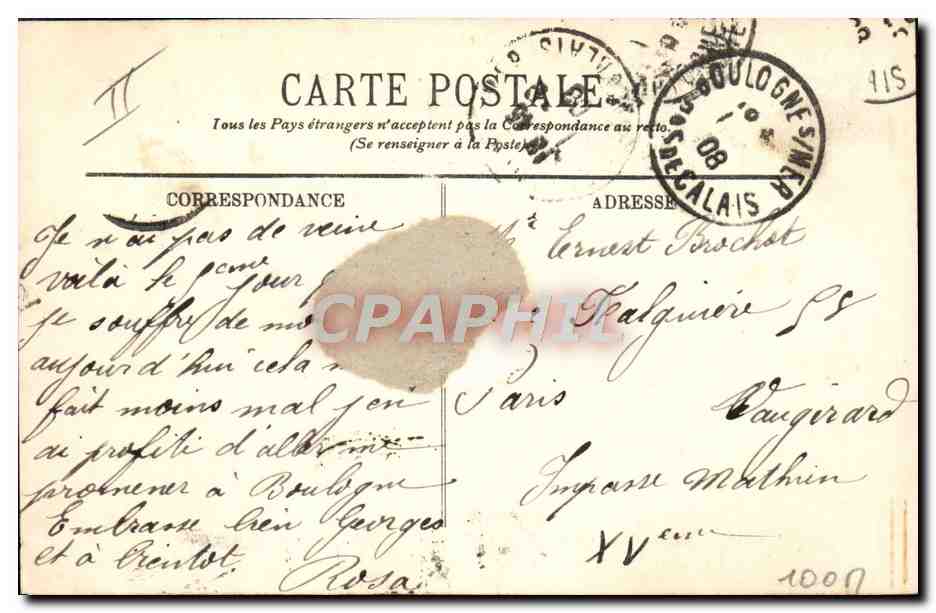 CARTE POSTALE
Tous les Pays étrangers n'acceptent pas la Correspondance au recto.
(Se renseigner à la Poste)
BOULOGNE S/MER
08
PAS DE CALAIS
AIS
II
CORRESPONDANCE
Je n'ai pas de veine
voilà le 5eme jour
je souffre de
aujourd'hui cela
fait moins mal j'en
ai profité d'aller me
promener à Boulogne
Embrasse bien Georges
et à bientot
Rosa
ADRESSE
Ernest Brochot
Paris
Vaugirard
Impasse Mathieu
XVeme
CPAPHIL